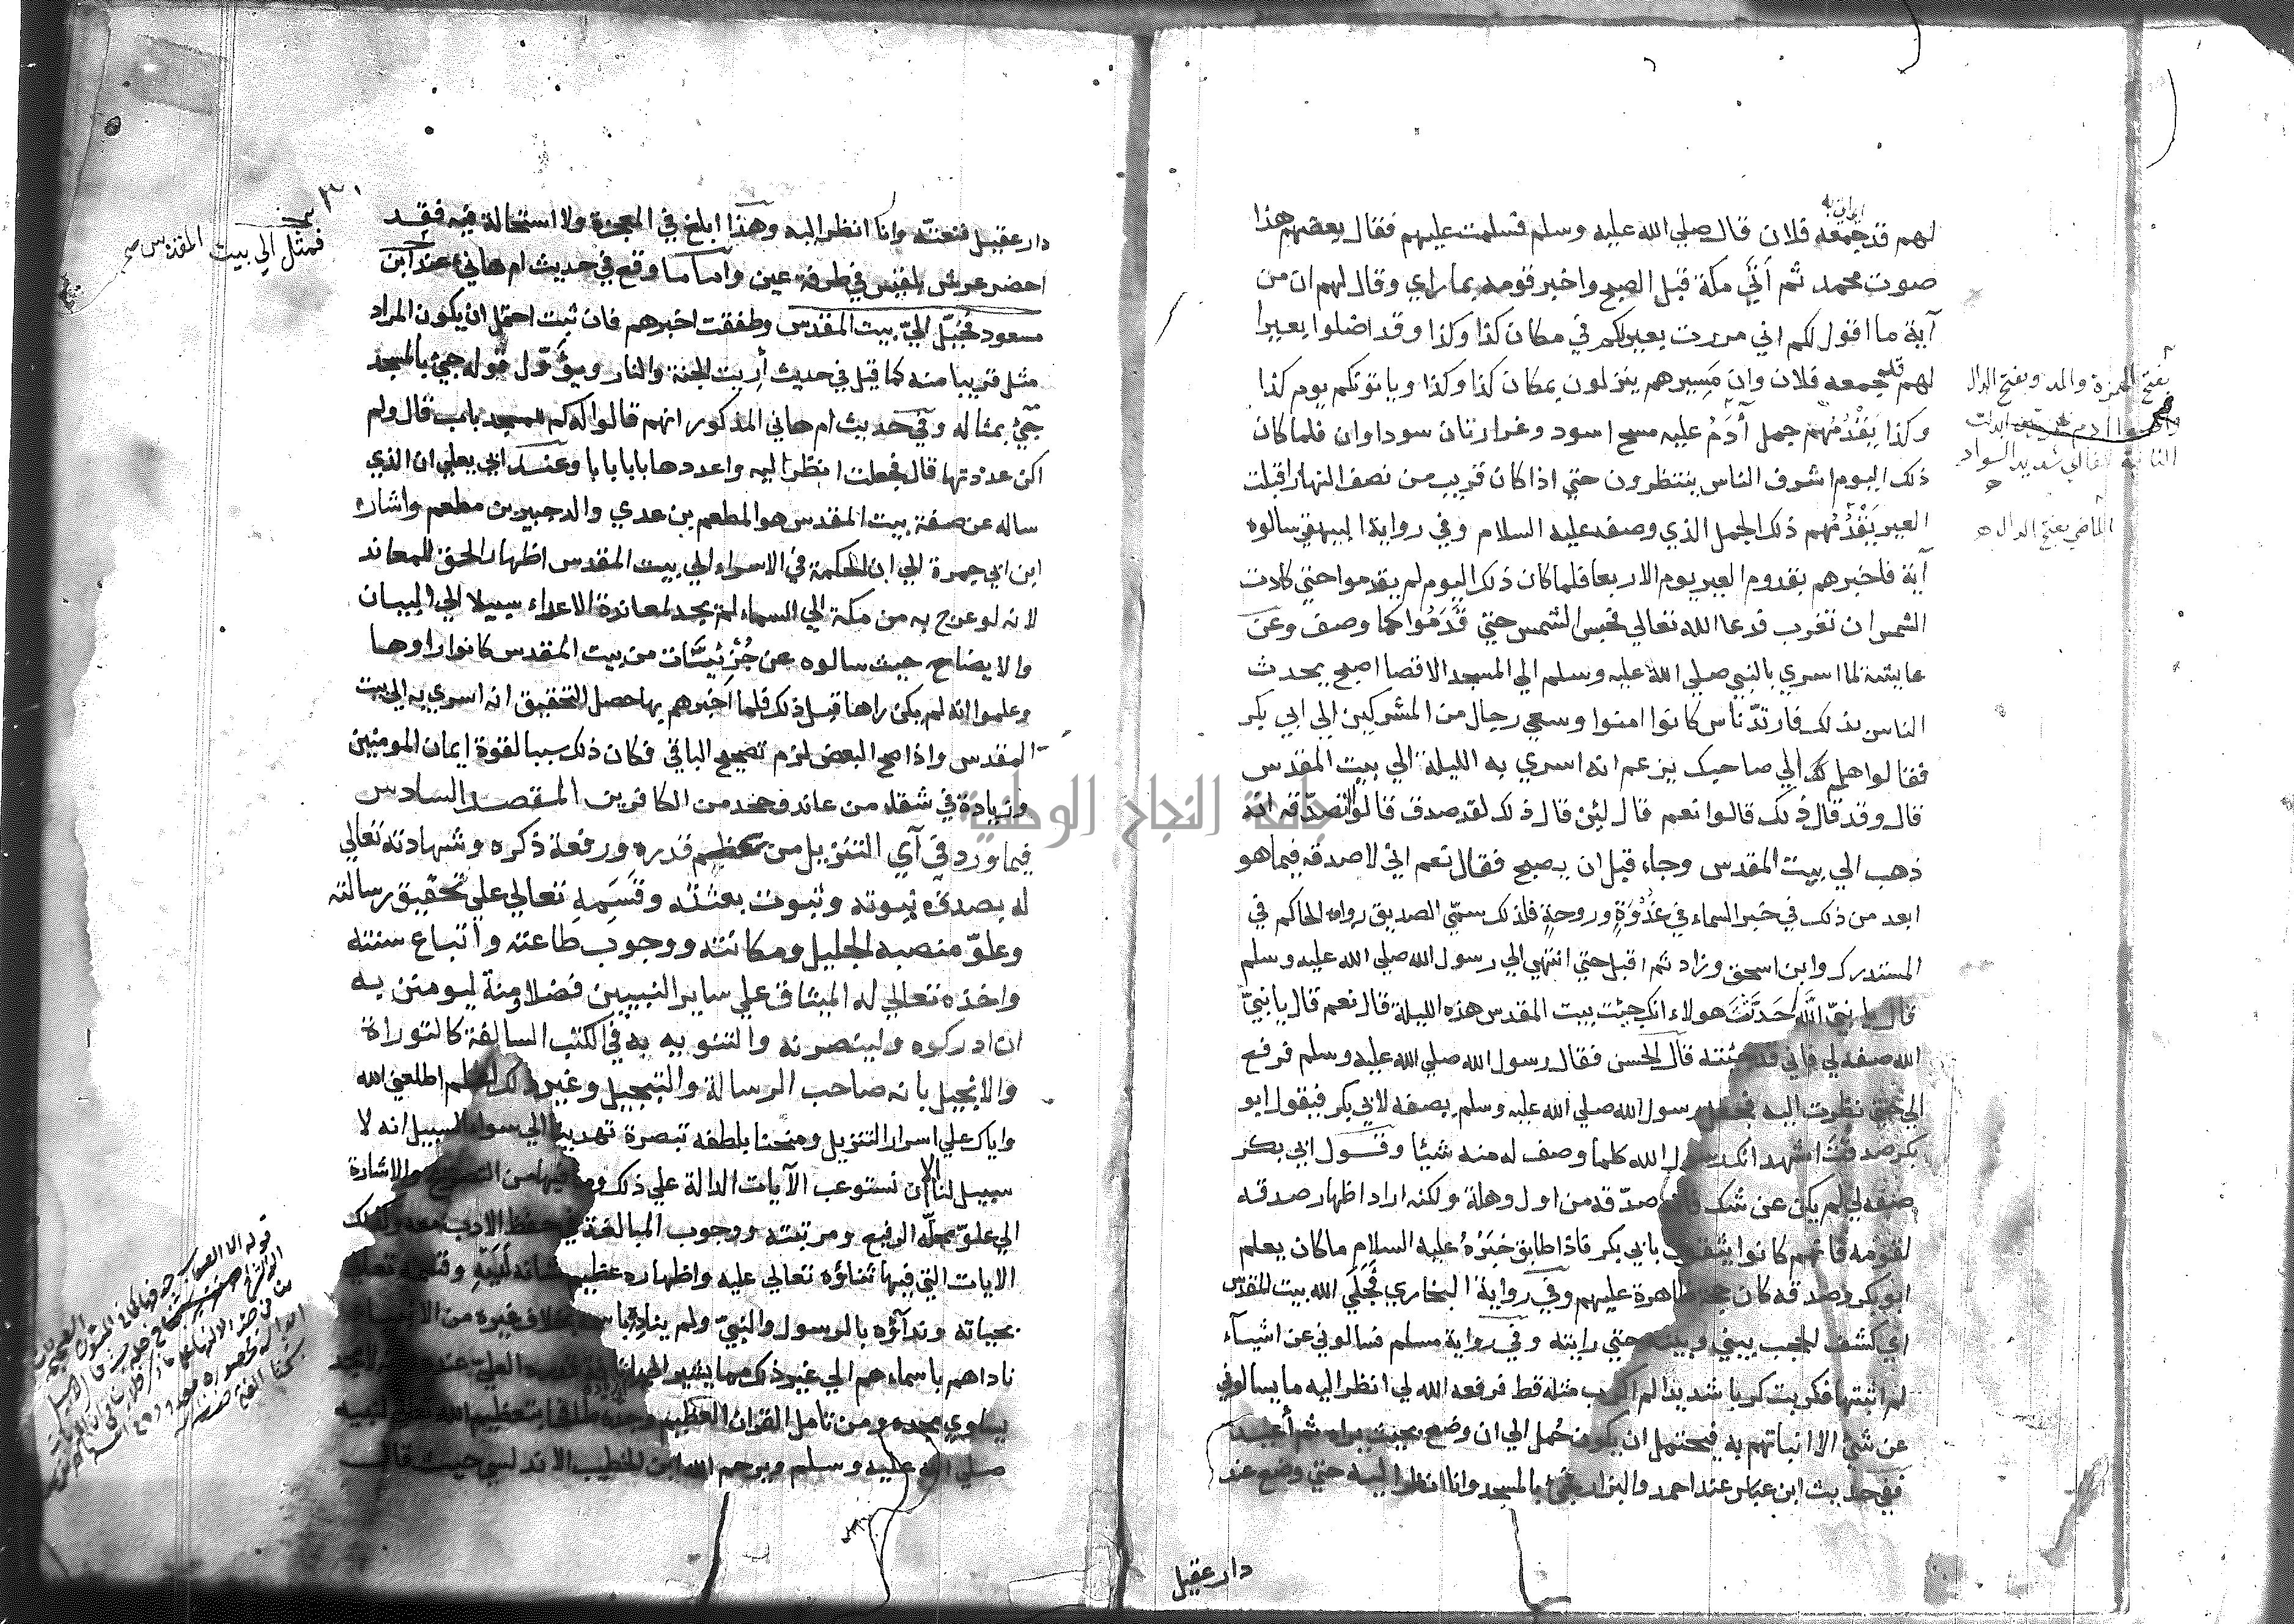 لهم قد جمعه فلان قال صلي الله عليه وسلم فسلمت عليهم فقال بعضهم هذا
صوت محمد ثم أتي مكة قبل الصبح واخبر قومه بما راي وقال لهم ان من
آية ما اقول لكم اني مررت بعير لكم في مكان كذا وكذا وقد اضلوا بعيرا
لهم فجمعه فلان وان مسيرهم ينزلون بمكان كذا وكذا وياتوتكم يوم كذا
وكذا يَقْدُمُهم جمل أَدَمُ عليه مسح اسود وغرارتان سوداوان فلما كان
ذلك اليوم اشرف الناس ينتظرون حتي اذا كان قريب من نصف النهار اقبلت
العير يَقْدُمُهم ذلك الجمل الذي وصفه عليه السلام وفي رواية البيهقي سالوه
آية فاخبرهم بقدوم العير يوم الاربعا فلما كان ذلك اليوم لم يقدموا حتي كادت
الشمس ان تغرب فدعا الله تعالي فحبس الشمس حتي قَدَمُوا كما وصف وعن
عايشة لما اسري بالنبي صلي الله عليه وسلم الي المسجد الاقصا اصبح يحدث
الناس بذلك فارتدّ ناس كانوا امنوا وسعي رجال من المشركين الي ابي بكر
فقالوا هل لك الي صاحبك يزعم انه اسري به الليلة الي بيت المقدس
قال وقد قال ذلك قالوا نعم قال لئن قال ذلك لقد صدق قالوا تصدّقه انه
ذهب الي بيت المقدس وجاء قبل ان يصبح فقال نعم اني لاصدقه فيما هو
ابعد من ذلك في خبر السماء في غَدْوَةٍ وروحةٍ فلذلك سمّي الصديق رواه الحاكم في
المستدرك وابن اسحق وزاد ثم اقبل حتي انتهي الي رسول الله صلي الله عليه وسلم
قال يا نبيّ الله حَدَّثْتَ هولاء انك جيئت بيت المقدس هذه الليلة قال نعم قال يا نبيّ
الله صفه لي فاني قد جئته قال الحسن فقال رسول الله صلي الله عليه وسلم فرفع
الي حتي نظرت اليه فجعل رسول الله صلي الله عليه وسلم يصفه لابي بكر فيقول ابو
بكر صدقت اشهد انك رسول الله كلما وصف له منه شيئا وقول ابي بكر
صفه لي لم يكن عن شك فانه صدّقه من اول وهلة ولكنه اراد اظهار صدقه
لقومه فانهم كانوا يثقون بابي بكر فاذا طابق خَبَرُهُ عليه السلام ما كان يعلم
ابو بكر وصدقه كان حجة ظاهرة عليهم وفي رواية البخاري فجلّي الله بيت المقدس
اي كشف الحجب بيني وبينه حتي رايته وفي رواية مسلم فسالوني عن اشيآء
لم اثبتها فكربت كربا شديدا لم اكرب مثله قط فرفعه الله لي انظر اليه ما يسالوني
عن شئ الا انباتهم به فيحتمل ان يكون حُمل الي ان وضع بحيث يراه ثم أعيد
ففي حديث ابن عباس عند احمد والبزار فجئ بالمسجد وانا انظر اليه حتي وضع عند
دار عقيل
بفتح الهمزة والمد وبفتح الدال
الماضي بفتح الدال
دار عقيل فنعته وانا انظر اليه وهذا ابلغ في المعجزة ولا استحالة فيه فقد
احضر عرش بلقيس في طرفة عين وأما ما وقع في حديث ام هانئ عند ابن
مسعود فخُيّل اليّ بيت المقدس وطفقت اخبرهم فان ثبت احتمل ان يكون المراد
مثل قريبا منه كما قيل في حديث أريت الجنة والنار ويؤوّل قوله جئ بالمسجد
جئ بمثاله وفي حديث ام هاني المذكور انهم قالوا له كم للمسجد باب قال ولم
اكن عددتها قال فجعلت انظر اليه واعددها بابا بابا وعند ابي يعلي ان الذي
ساله عن صفة بيت المقدس هو المطعم بن عدي والد جبير بن مطعم واشار
ابن ابي جمرة الي ان الحكمة في الاسراء الي بيت المقدس اظهار الحق للمعاند
لانه لو عرج به من مكة الي السماء لم يجد لمعاندة الاعداء سبيلا الي البيان
والايضاح حيث سالوه عن جُزْئِيَّات من بيت المقدس كانوا راوها
وعلموا انه لم يكن راها قبل ذلك فلما اخبرهم بها حصل التحقيق انه اسري به الي بيت
المقدس واذا صح البعض لزم تصحيح الباقي فكان ذلك سببا لقوة ايمان المومنين
وزيادة في شقاء من عاند وجحد من الكافرين المقصد السادس
فيما ورد في آي التنزيل من تعظيم قدره ورفعة ذكره وشهادته تعالي
له بصدق نبوته وثبوت بعثته وقَسَمِهِ تعالي علي تحقيق رسالته
وعلوّ منصبه الجليل ومكانته ووجوب طاعته واتباع سنته
واخذه تعالي له الميثاق علي ساير النبيين فضلا ومنة ليومنن به
ان ادركوه ولينصرنه والتنويه به في الكتب السالفة كالتوراة
والانجيل بانه صاحب الرسالة والتبجيل وغير ذلك اعلم اطلعني الله
واياك علي اسرار التنزيل ومنحنا بلطفه تبصرة تهدينا الي سواء السبيل انه لا
سبيل لنا الان نستوعب الآيات الدالة علي ذلك وما فيها من التصريح والاشارة
الي علوّ محلّه الرفيع ومرتبته ووجوب المبالغة في حفظ الادب معه وكذلك
الايات التي فيها ثناؤه تعالي عليه واظهاره عظيم شانه لَدَيْهِ وقسمه تعالي
بحياته وندآؤه بالرسول والنبيّ ولم يناد باسمه بخلاف غيره من الانبياء
ناداهم باسماءهم الي غير ذلك مما يشير الي انافة قدره العليّ عنده لا مجد
يساوي مجده ومن تامل القران العظيم وجده طافحا بتعظيم الله تعالي لنبيه
صلي الله عليه وسلم ويرحم الله ابن الخطيب الاندلسي حيث قال
فمثل الي بيت المقدس صح